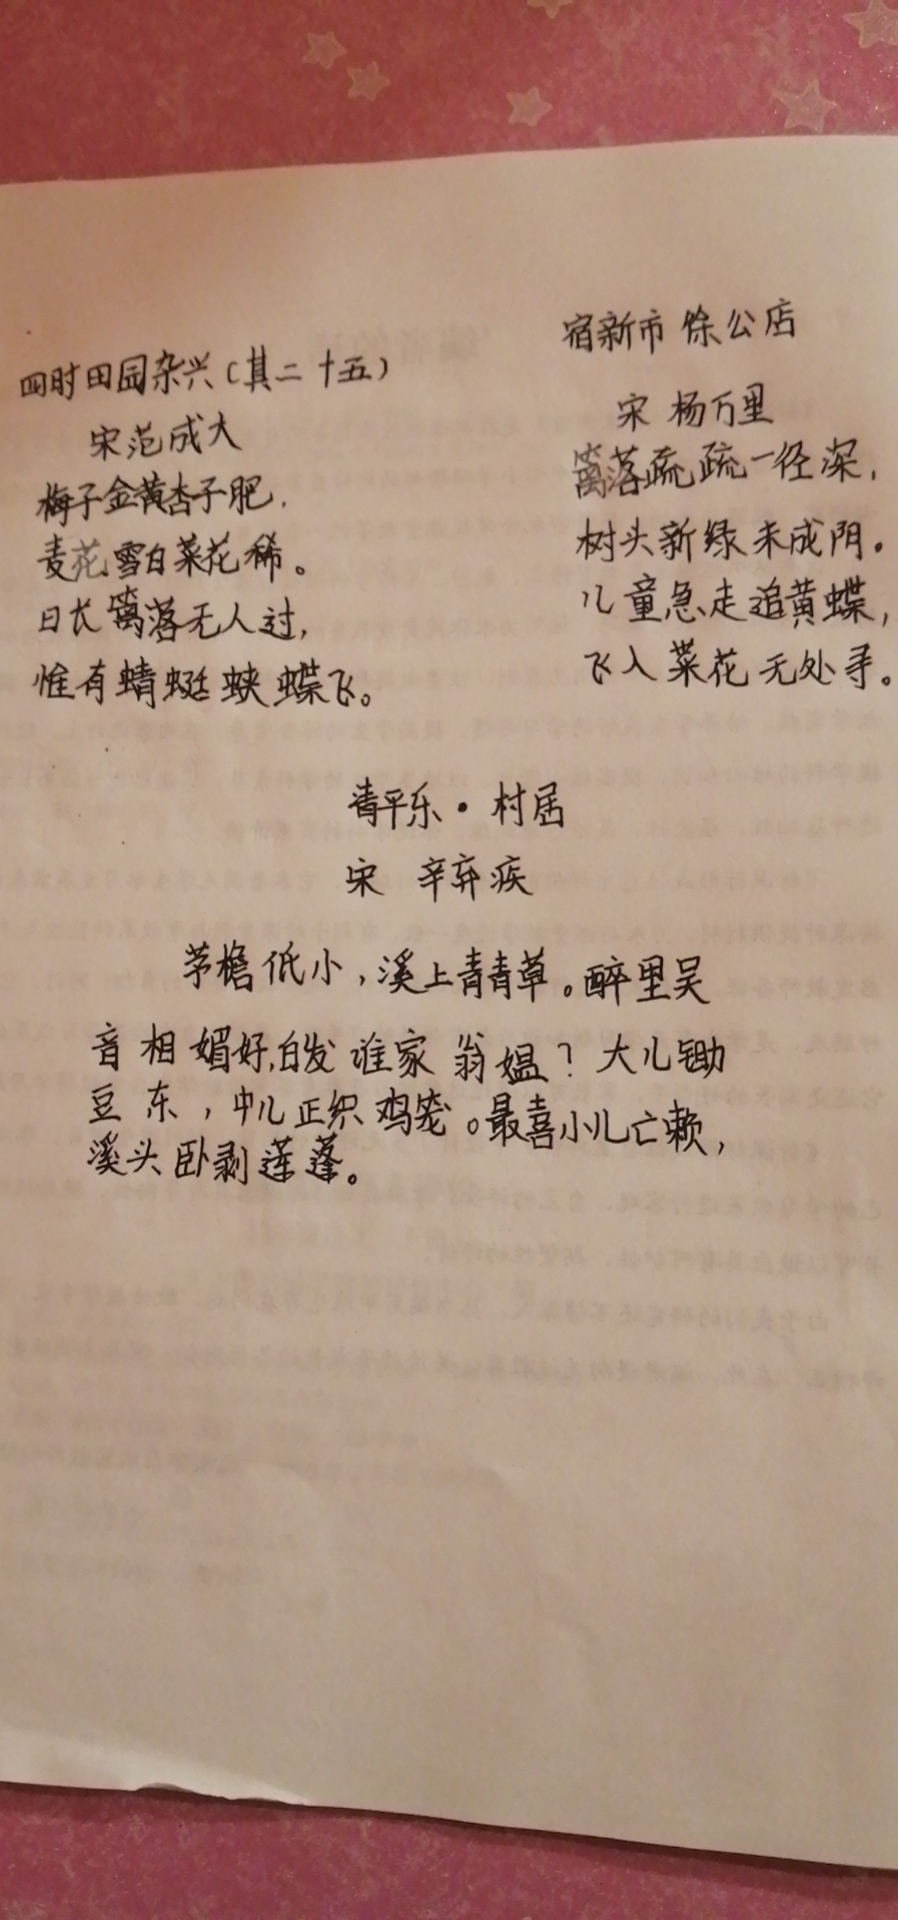 四时田园杂兴(其二十五)
宋范成大
梅子金黄杏子肥,
麦花雪白菜花稀。
日长篱落无人过,
惟有蜻蜓蛱蝶飞。
宿新市徐公店
宋 杨万里
篱落疏疏一径深,
树头新绿未成阴。
儿童急走追黄蝶,
飞入菜花无处寻。
清平乐·村居
宋 辛弃疾
茅檐低小,溪上青青草。醉里吴
音相媚好,白发谁家翁媪?大儿锄
豆东,中儿正织鸡笼。最喜小儿亡赖,
溪头卧剥莲蓬。